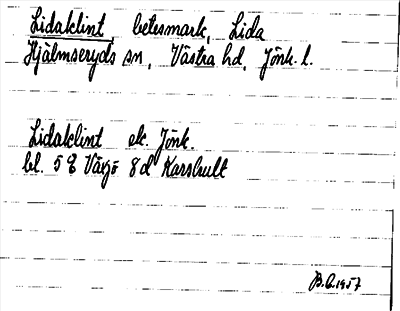 Lidaklint, betesmark, Lida
Hjälmseryds sn, Västra hd, Jönk. l.
Lidaklint ek. Jönk.
bl. 5 E Växjö 8d Karshult
B.A. 1957